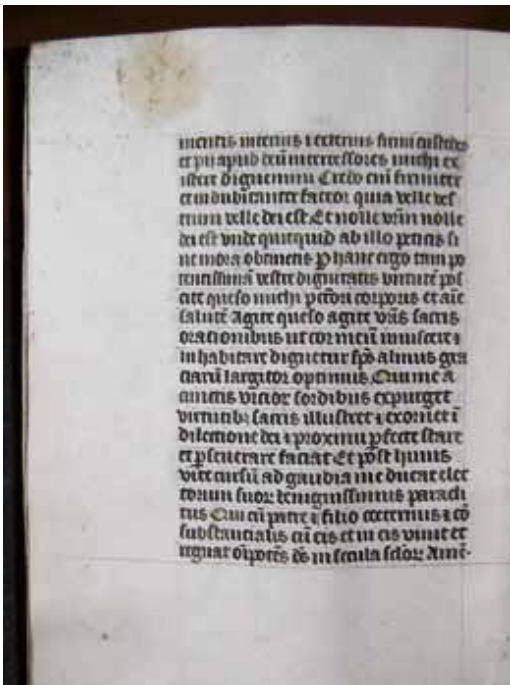 mentis interius ⁊ exterius firmi custodes
et pii apud deū intercessores michi ex
istere dignemini Credo eni firmiter
et indubitanter fateor quia velle ves
trum velle dei est Et nolle vr̄m nolle
dei est vnde quicquid ab illo petitis si
ne mora obtinetis P hanc ergo tam po
tentissimā vestre dignitatis virtutē pos
cite queso michi pctōri corporis et aīe
salutē Agite queso agite vr̄is sacris
orationibus ut cor meū inuisere ⁊
inhabitare dignetur sp̄s almus gra
ciarū largitor optimus Qui me a
cunctis vicior sordibus expurget
virtutibꝫ sacris illustret ⁊ exornet ī
dilectione dei ⁊ proximi pfecte stare
et pseuerare faciat Et post huius
vite cursū ad gaudia me ducat elec
torum suor benignissimus paracli
tus Qui cū patre ⁊ filio coeternus ⁊ cō
substantialis cū eis et in eis viuit et
regnat oīpotēs dē̄s in secula sclōꝝ Amē